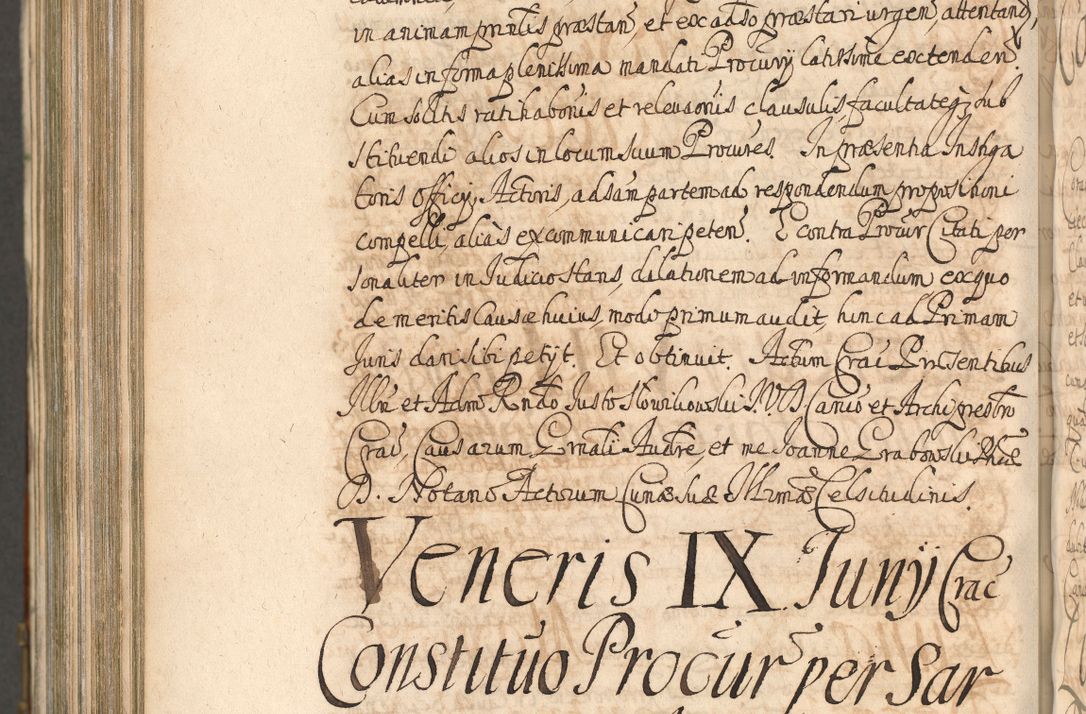 in animam prntis præstan̄, et ex adso præstari urgen̄, attentand,
alias in forma plenissima mandati Procury latissime extenden̄.
Cum solitis ratihabonis et relevaonis clausulis, facultateq sub
stituendi alios in locum suum Procures. In præsentia Instiga
toris Officÿ, Actoris, adsam partem ad respondendum propositioni
compelli, aliàs excommunicari peten̄. E contra Procur Citati per
sonaliter in Judicio stans, dilationem ad informandum ex quo
de meritis Causæ huius, modo primum audit, hinc ad Primam
Juris dari sibi petÿt. Et obtinuit. Actum Crac Præsentibus
Illri et Adm Rndo Justo Słowikowski I.V.D. Canco et Archipresbro
Crac, Causarum Gnali Audre, et me Joanne Grabowski
D. Notario Actorum Curiæ Suæ Illrmæ Celsitudinis.
Veneris IX Junÿ Crac
Constitūo Procur per Sar